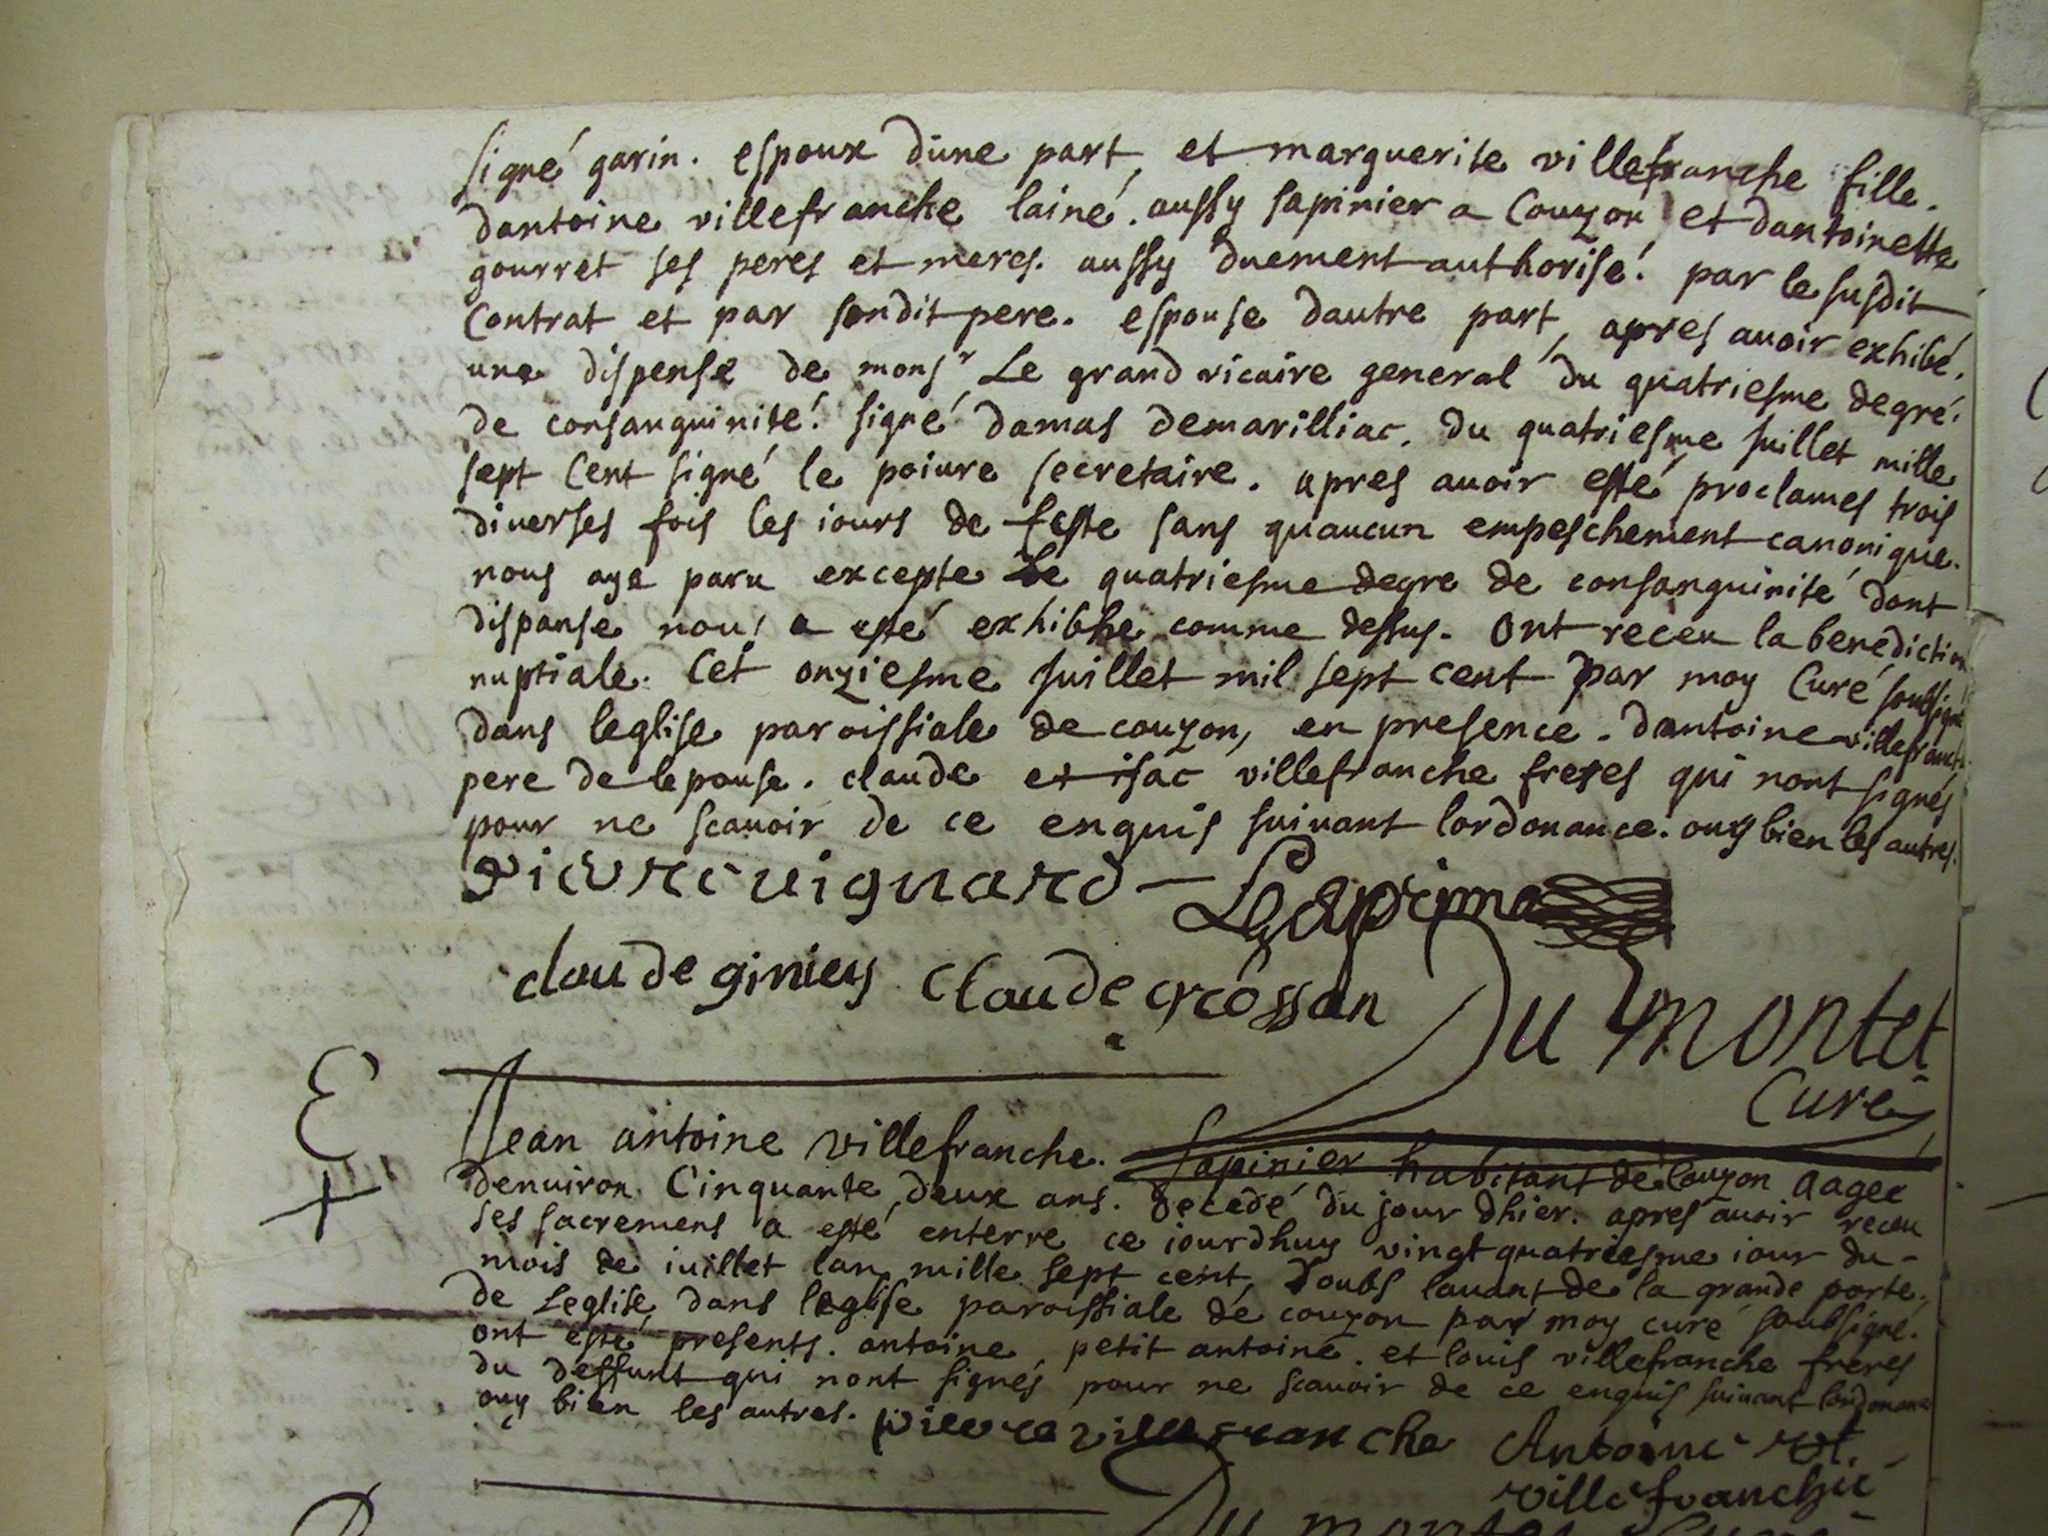 signé garin. espoux dune part, et marguerite villefranche fille.
dantoine villefranche lainé. aussy sapinier a Couzon et dantoinette
gourret ses peres et meres. aussy duement authorisé. par le susdit
Contrat et par sondit pere. espouse dautre part, apres auoir exhibé.
une dispense de monsr Le grand vicaire general du quatriesme degré.
de consanguinité. signé damas demarilliac. du quatriesme Juillet mille
sept Cent signé le poiure secretaire. apres auoir esté proclames trois
diuerses fois les iours de feste sans quaucun empeschement canonique.
nous aye paru excepte Le quatriesme degre de consanguinité dont
dispanse nous a esté exhibhe comme dessus. Ont receu la benediction
nuptiale. Cet onziesme Juillet mil sept cent par moy Curé soubsigné
dans leglise paroissiale de couzon, en presence. dantoine villefranche
pere de lepouse. claude et isac villefranche freres qui nont signés
pour ne scauoir de ce enquis suiuant lordonance. ouy bien les autres.
pierre uignard
claude giniey claude crossan Du montet
Curé
E Jean antoine villefranche. sapinier habitant de Couzon aagee
+ denuiron Cinquante deux ans. decedé du jour dhier. apres auoir receu
ses sacremens a esté enterre ce iourdhuy vingtquatriesme iour du
mois de iuillet lan mille sept cent, soubs lauant de la grande porte.
de Leglise, dans leglise paroissiale de couzon par moy curé soubsigné.
ont esté presents. antoine, petit antoine. et louis villefranche freres
du deffunt qui nont signés pour ne scauoir de ce enquis suiuant lordonance
ouy bien les autres. pierre villefranche Antoine
villefranche
Du montet Curé